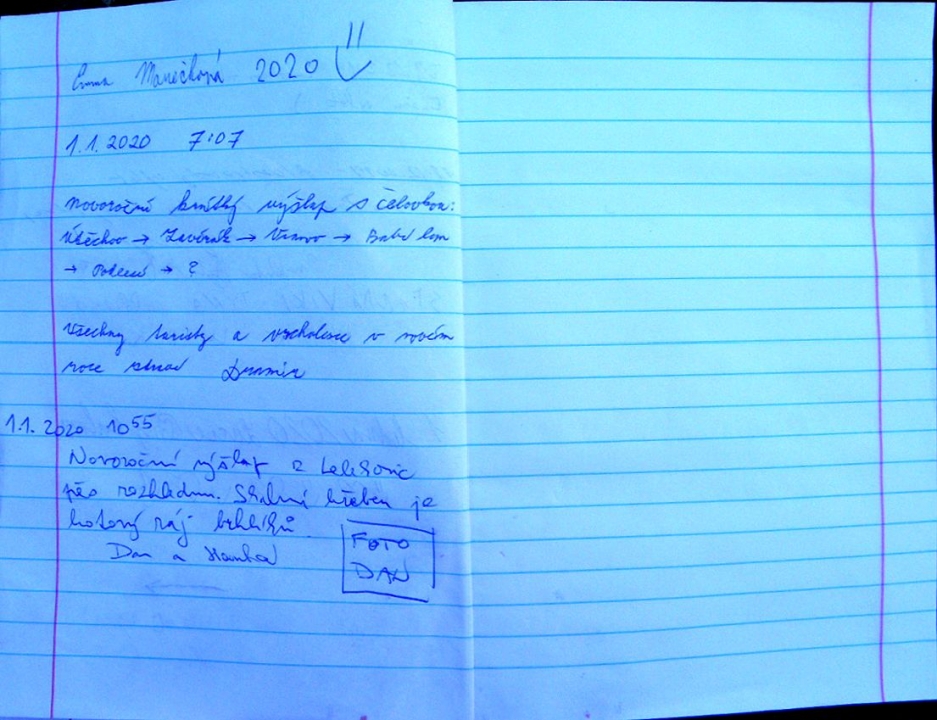 Emma Marečková 2020
1.1.2020 7:07
Novoroční krátký výšlap s čelovkou:
Útěchov → Zavírák → Vranov → Babí lom
→ → ?
Všechny turisty a v novém
roce zdraví
1.1.2020 10 55
Novoroční výšlap z Lelekovic
přes rozhlednu. Skalní hřeben je
hotový ráj brhlíků.
Dan a Hanka
FOTO
DAN